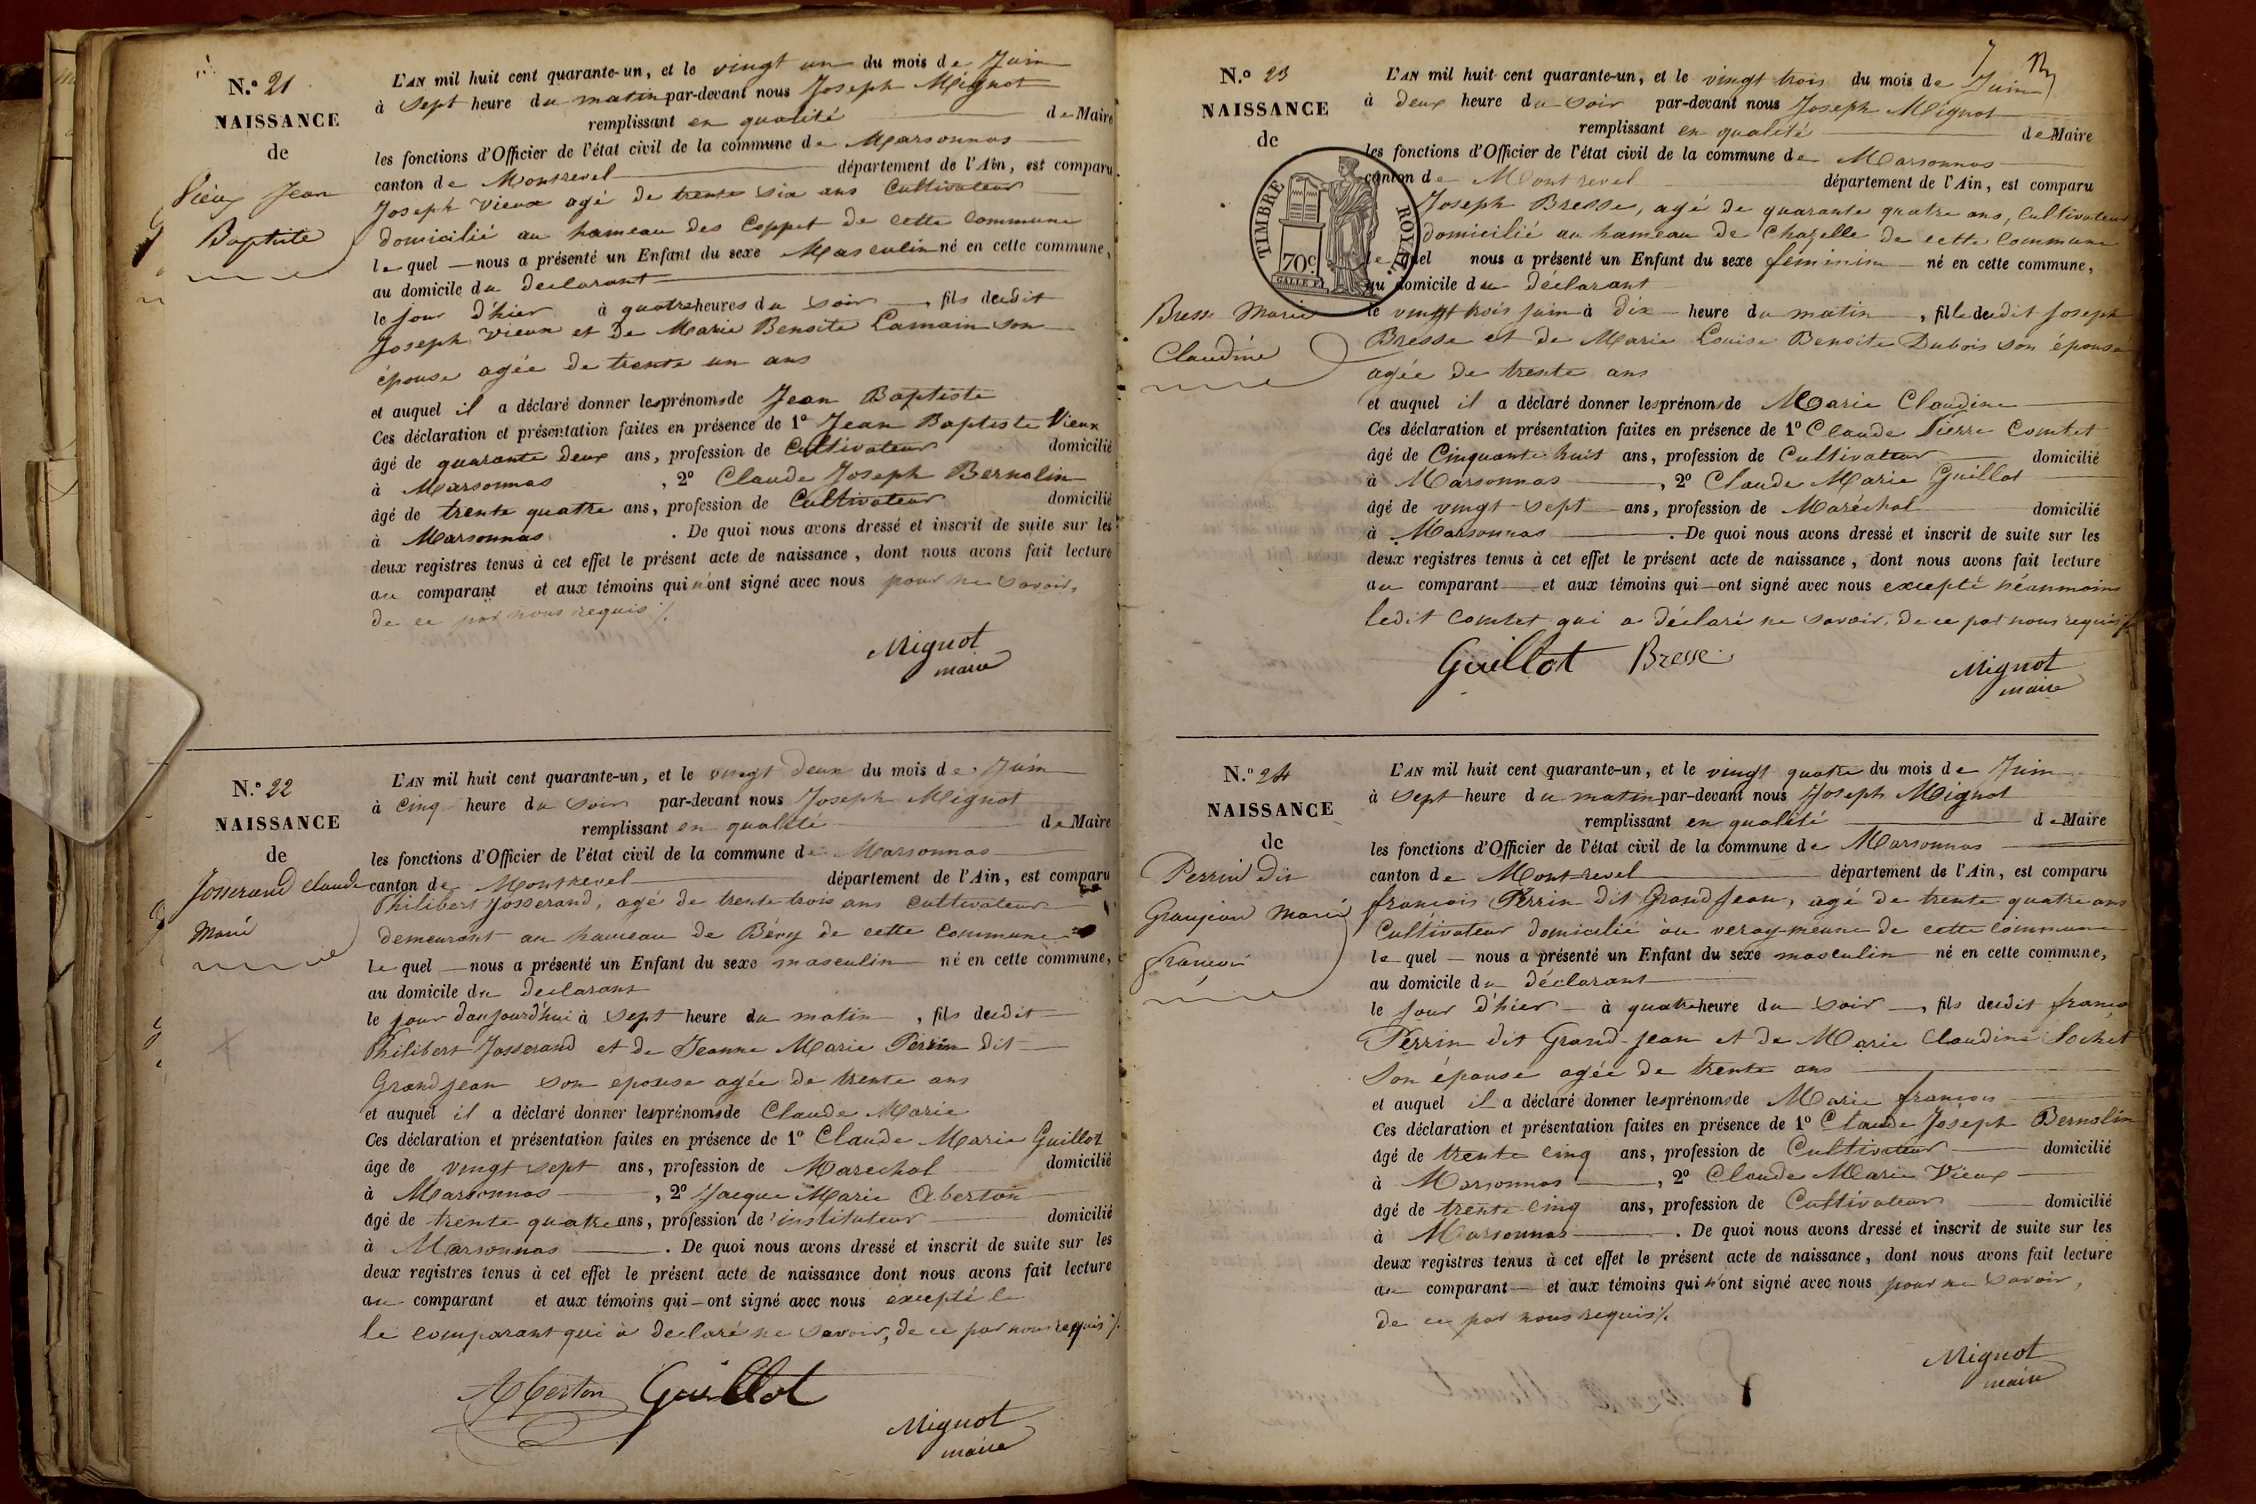 N.o 21
NAISSANCE
de
Vieux Jean
Baptiste
L'AN mil huit cent quarante-un, et le vingt un du mois de Juin
à sept heure du matin par-devant nous Joseph Mignot
remplissant en qualité de Maire
les fonctions d'Officier de l'état civil de la commune de Marsonnas
canton de Montrevel département de l'Ain, est comparu
Joseph Vieux agé de trente six ans Cultivateur
domicilié au hameau des Coppet de cette commune
lequel nous a présenté un Enfant du sexe Masculin né en cette commune,
au domicile du declarant
le jour d'hier à quatre heures du soir, fils dudit
Joseph Vieux et de Marie Benoite Lamain son
épouse agée de trente un ans
et auquel il a déclaré donner les prénoms de Jean Baptiste
Ces déclaration et présentation faites en présence de 1o Jean Baptiste Vieux
âgé de quarante deux ans, profession de Cultivateur domicilié
à Marsonnas, 2o Claude Joseph Bernolin
âgé de trente quatre ans, profession de Cultivateur domicilié
à Marsonnas. De quoi nous avons dressé et inscrit de suite sur les
deux registres tenus à cet effet le présent acte de naissance, dont nous avons fait lecture
au comparant et aux témoins qui n'ont signé avec nous pour ne savoir,
de ce par nous requis ./.
Mignot
maire
N.o 22
NAISSANCE
de
Josserand Claude
Marie
L'AN mil huit cent quarante-un, et le vingt deux du mois de Juin
à cinq heure du soir par-devant nous Joseph Mignot
remplissant en qualité de Maire
les fonctions d'Officier de l'état civil de la commune de Marsonnas
canton de Montrevel département de l'Ain, est comparu
Philibert Josserand, agé de trente trois ans cultivateur
demeurant au hameau de Béry de cette commune
lequel nous a présenté un Enfant du sexe masculin né en cette commune,
au domicile du declarant
le jour d'aujourd'hui à sept heure du matin, fils dudit
Philibert Josserand et de Jeanne Marie Perrin dit
Grandjean son épouse agée de trente ans
et auquel il a déclaré donner les prénoms de Claude Marie
Ces déclaration et présentation faites en présence de 1o Claude Marie Guillot
âgé de vingt sept ans, profession de Marechal domicilié
à Marsonnas, 2o Jacque Marie Aberton
âgé de trente quatre ans, profession de instituteur domicilié
à Marsonnas. De quoi nous avons dressé et inscrit de suite sur les
deux registres tenus à cet effet le présent acte de naissance dont nous avons fait lecture
au comparant et aux témoins qui ont signé avec nous excepté le
le comparant qui a declaré ne savoir, de ce par nous requis ./.
Aberton Guillot
Mignot
maire
N.o 23
NAISSANCE
de
Bresse Marie
Claudine
TIMBRE ROYAL
70c
L'AN mil huit cent quarante-un, et le vingt trois du mois de Juin
à deux heure du soir par-devant nous Joseph Mignot
remplissant en qualité de Maire
les fonctions d'Officier de l'état civil de la commune de Marsonnas
canton de Montrevel département de l'Ain, est comparu
Joseph Bresse, agé de quarante quatre ans, Cultivateur
domicilié au hameau de Chazelle de cette commune
lequel nous a présenté un Enfant du sexe féminin né en cette commune,
au domicile du déclarant
le vingt trois juin à dix heure du matin, fille dudit Joseph
Bresse et de Marie Louise Benoite Dubois son épouse
agée de trente ans
et auquel il a déclaré donner les prénoms de Marie Claudine
Ces déclaration et présentation faites en présence de 1o Claude Pierre Comtet
âgé de Cinquante huit ans, profession de Cultivateur domicilié
à Marsonnas, 2o Claude Marie Guillot
âgé de vingt sept ans, profession de Maréchal domicilié
à Marsonnas. De quoi nous avons dressé et inscrit de suite sur les
deux registres tenus à cet effet le présent acte de naissance, dont nous avons fait lecture
au comparant et aux témoins qui ont signé avec nous excepté néanmoins
ledit Comtet qui a déclaré ne savoir, de ce par nous requis ./.
Guillot Bresse
Mignot
maire
N.o 24
NAISSANCE
de
Perrin dit
Granjean Marie
François
L'AN mil huit cent quarante-un, et le vingt quatre du mois de Juin
à sept heure du matin par-devant nous Joseph Mignot
remplissant en qualité de Maire
les fonctions d'Officier de l'état civil de la commune de Marsonnas
canton de Montrevel département de l'Ain, est comparu
françois Perrin dit Grandjean, agé de trente quatre ans
Cultivateur domicilié au de cette commune
lequel nous a présenté un Enfant du sexe masculin né en cette commune,
au domicile du déclarant
le jour d'hier à quatre heure du soir, fils dudit franço
Perrin dit Grand-Jean et de Marie Claudine Sochet
son épouse agée de trente ans
et auquel il a déclaré donner les prénoms de Marie françois
Ces déclaration et présentation faites en présence de 1o Claude Joseph Bernolin
âgé de trente cinq ans, profession de Cultivateur domicilié
à Marsonnas, 2o Claude Marie Vieux
âgé de trente cinq ans, profession de Cultivateur domicilié
à Marsonnas. De quoi nous avons dressé et inscrit de suite sur les
deux registres tenus à cet effet le présent acte de naissance, dont nous avons fait lecture
au comparant et aux témoins qui n'ont signé avec nous pour ne savoir,
de ce par nous requis ./.
Mignot
maire